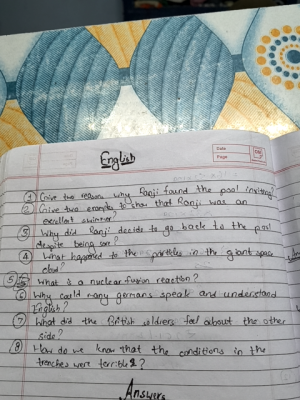 English
Date
Page
① Give two reasons why Ranji found the pool inviting?
② Give two examples to show that Ranji was an
excellent swimmer?
③ Why did Ranji decide to go back to the pool
despite being sore?
④ What happened to the particles in the giant space
cloud?
⑤ What is a nuclear fusion reaction?
⑥ Why could many germans speak and understand
English?
⑦ What did the British soldiers feel about the other
side?
⑧ How do we know that the conditions in the
trenches were terrible?
Answers